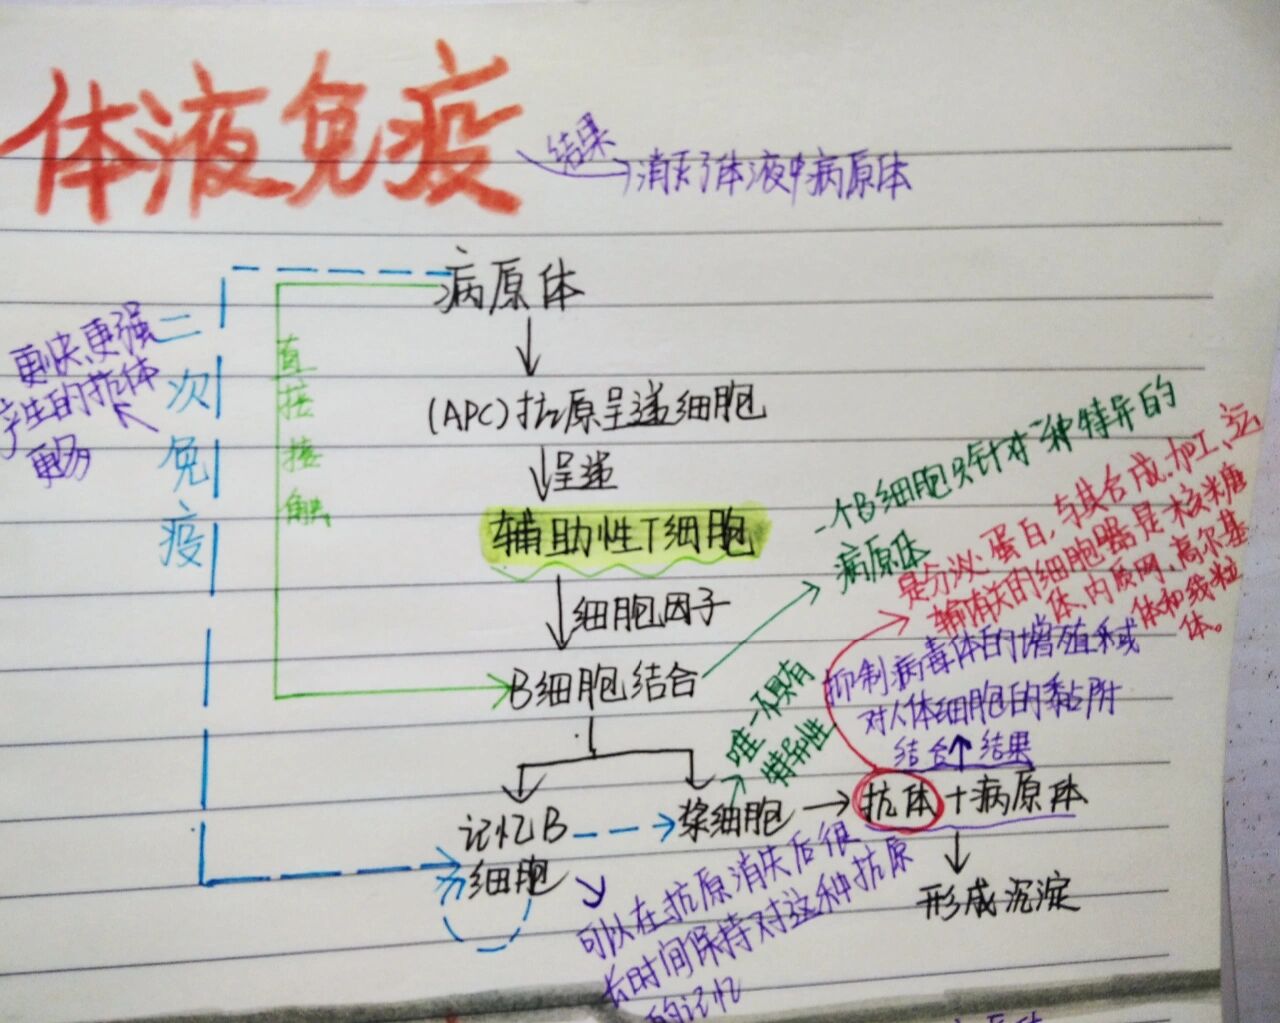 体液免疫
结果
消灭了体液中病原体
病原体
更快、更强
产生的抗体
更多
二次免疫
直接接触
(APC)抗原呈递细胞
呈递
辅助性T细胞
细胞因子
B细胞结合
一个B细胞只针对一种特异的
病原体
是分泌蛋白,与其合成、加工、运
输有关的细胞器是核糖
体、内质网、高尔基
体和线粒
体。
抑制病毒体的增殖和或
对人体细胞的黏附
结合 结果
唯一不具有
特异性
记忆B
细胞
浆细胞
抗体+病原体
形成沉淀
可以在抗原消失后很
长时间保持对这种抗原
的记忆